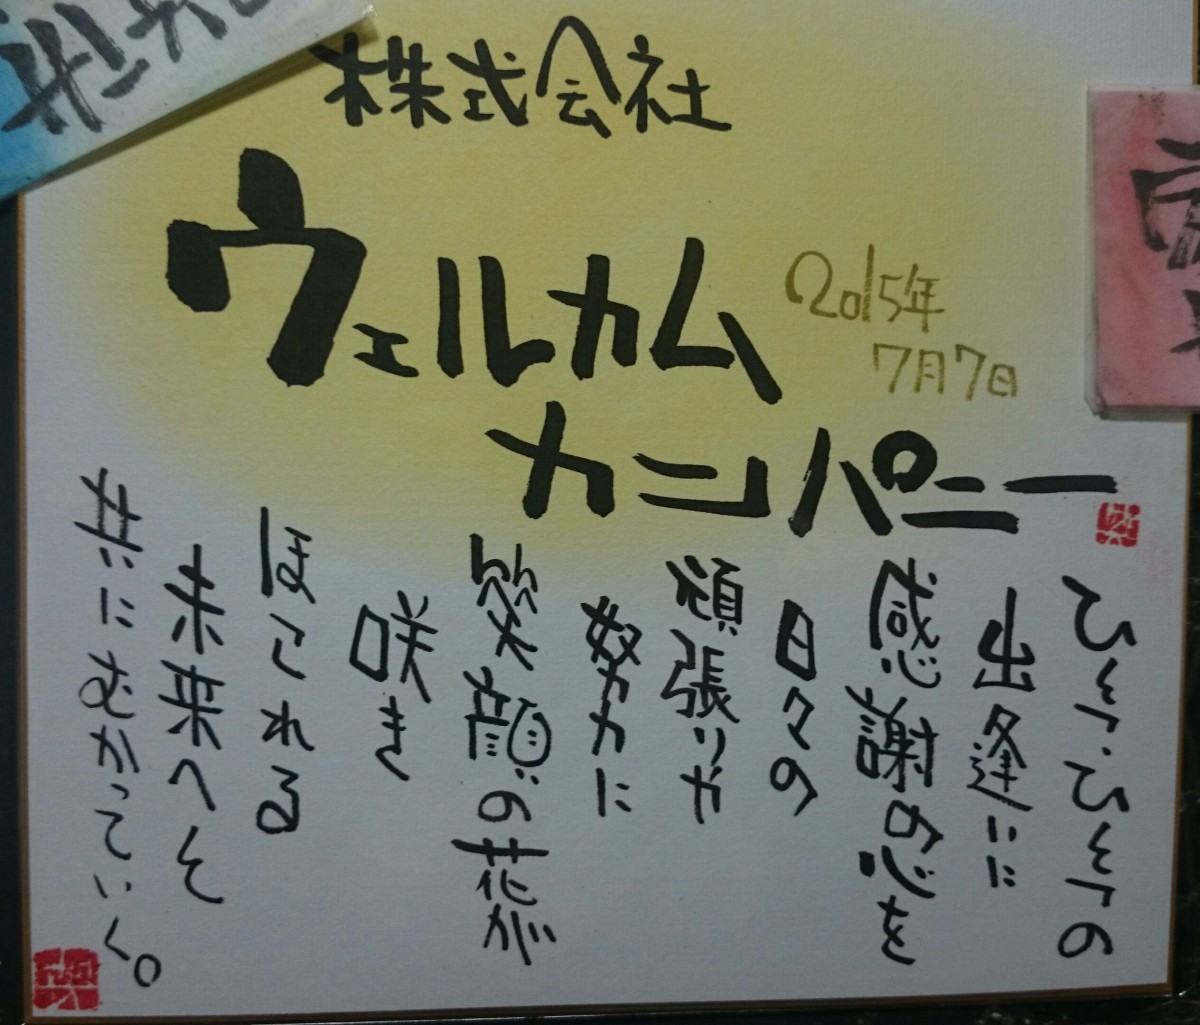 株式会社
ウェルカム
カンパニー
2015年
7月7日
ひとつ・ひとつの
出逢いに
感謝の心を
日々の
頑張りや
努力に
笑顔の花が
咲き
ほこれる
未来へと
共にむかっていく。